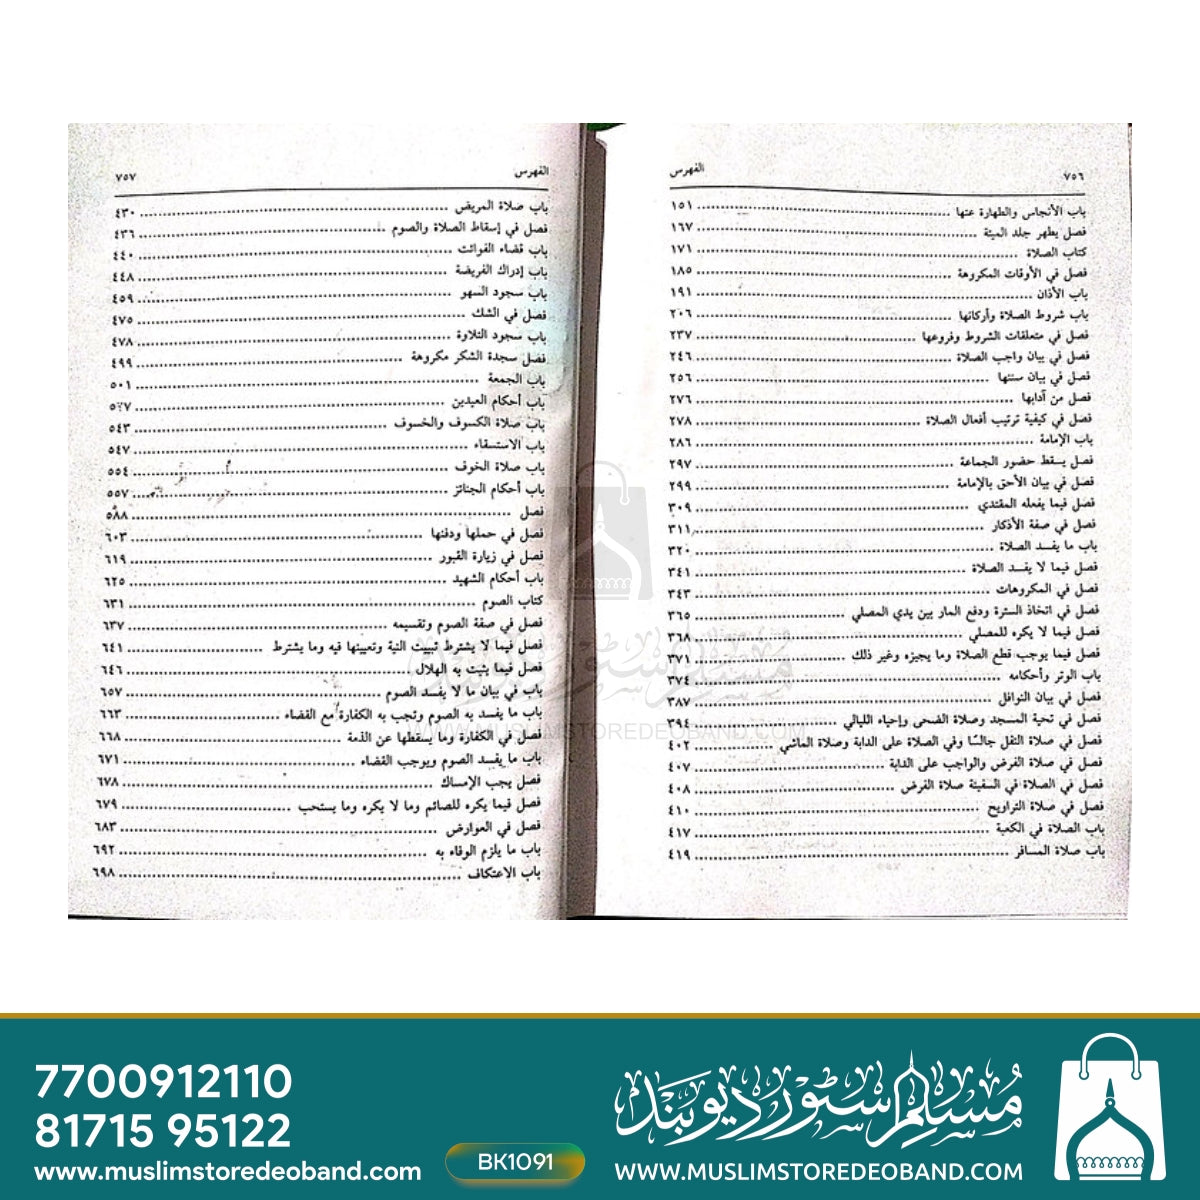 ٧٥٦ الفهرس
باب الأنجاس والطهارة عنها ١٥١
فصل يطهر جلد الميتة ١٦٧
كتاب الصلاة ١٧١
فصل في الأوقات المكروهة ١٨٥
باب الأذان ١٩١
باب شروط الصلاة وأركانها ٢٠٦
فصل في متعلقات الشروط وفروعها ٢٣٧
فصل في بيان واجب الصلاة ٢٤٦
فصل في بيان سننها ٢٥٦
فصل من آدابها ٢٧٦
فصل في كيفية ترتيب أفعال الصلاة ٢٧٨
باب الإمامة ٢٨٦
فصل يسقط حضور الجماعة ٢٩٧
فصل في بيان الأحق بالإمامة ٢٩٩
فصل فيما يفعله المقتدي ٣٠٩
فصل في صفة الأذكار ٣١١
باب ما يفسد الصلاة ٣٢٠
فصل فيما لا يفسد الصلاة ٣٤١
فصل في المكروهات ٣٤٣
فصل في اتخاذ السترة ودفع المار بين يدي المصلي ٣٦٥
فصل فيما لا يكره للمصلي ٣٦٨
فصل فيما يوجب قطع الصلاة وما يجيزه وغير ذلك ٣٧١
باب الوتر وأحكامه ٣٧٤
فصل في بيان النوافل ٣٨٧
فصل في تحية المسجد وصلاة الضحى وإحياء الليالي ٣٩٤
فصل في صلاة النفل جالسًا وفي الصلاة على الدابة وصلاة الماشي ٤٠٢
فصل في صلاة الفرض والواجب على الدابة ٤٠٧
فصل في الصلاة في السفينة صلاة الفرض ٤٠٨
فصل في صلاة التراويح ٤١٠
باب الصلاة في الكعبة ٤١٧
باب صلاة المسافر ٤١٩
الفهرس ٧٥٧
باب صلاة المريض ٤٣٠
فصل في إسقاط الصلاة والصوم ٤٣٦
باب قضاء الفوائت ٤٤٠
باب إدراك الفريضة ٤٤٨
باب سجود السهو ٤٥٩
فصل في الشك ٤٧٥
باب سجود التلاوة ٤٧٨
فصل سجدة الشكر مكروهة ٤٩٩
باب الجمعة ٥٠١
باب أحكام العيدين ٥٢٧
باب صلاة الكسوف والخسوف ٥٤٣
باب الاستسقاء ٥٤٧
باب صلاة الخوف ٥٥٤
باب أحكام الجنائز ٥٥٧
فصل ٥٨٨
فصل في حملها ودفنها ٦٠٣
فصل في زيارة القبور ٦١٩
باب أحكام الشهيد ٦٢٥
كتاب الصوم ٦٣١
فصل في صفة الصوم وتقسيمه ٦٣٧
فصل فيما لا يشترط تبييت النية وتعيينها فيه وما يشترط ٦٤١
فصل فيما يثبت به الهلال ٦٤٦
باب في بيان ما لا يفسد الصوم ٦٥٧
باب ما يفسد به الصوم وتجب به الكفارة مع القضاء ٦٦٣
فصل في الكفارة وما يسقطها عن الذمة ٦٦٨
باب ما يفسد الصوم ويوجب القضاء ٦٧١
فصل يجب الإمساك ٦٧٨
فصل فيما يكره للصائم وما لا يكره وما يستحب ٦٧٩
فصل في العوارض ٦٨٣
باب ما يلزم الوفاء به ٦٩٢
باب الاعتكاف ٦٩٨
مسلم سٹور دیوبند
WWW.MUSLIMSTOREDEOBAND.COM
7700912110
81715 95122
www.muslimstoredeoband.com
BK1091
مسلم سٹور دیوبند
WWW.MUSLIMSTOREDEOBAND.COM